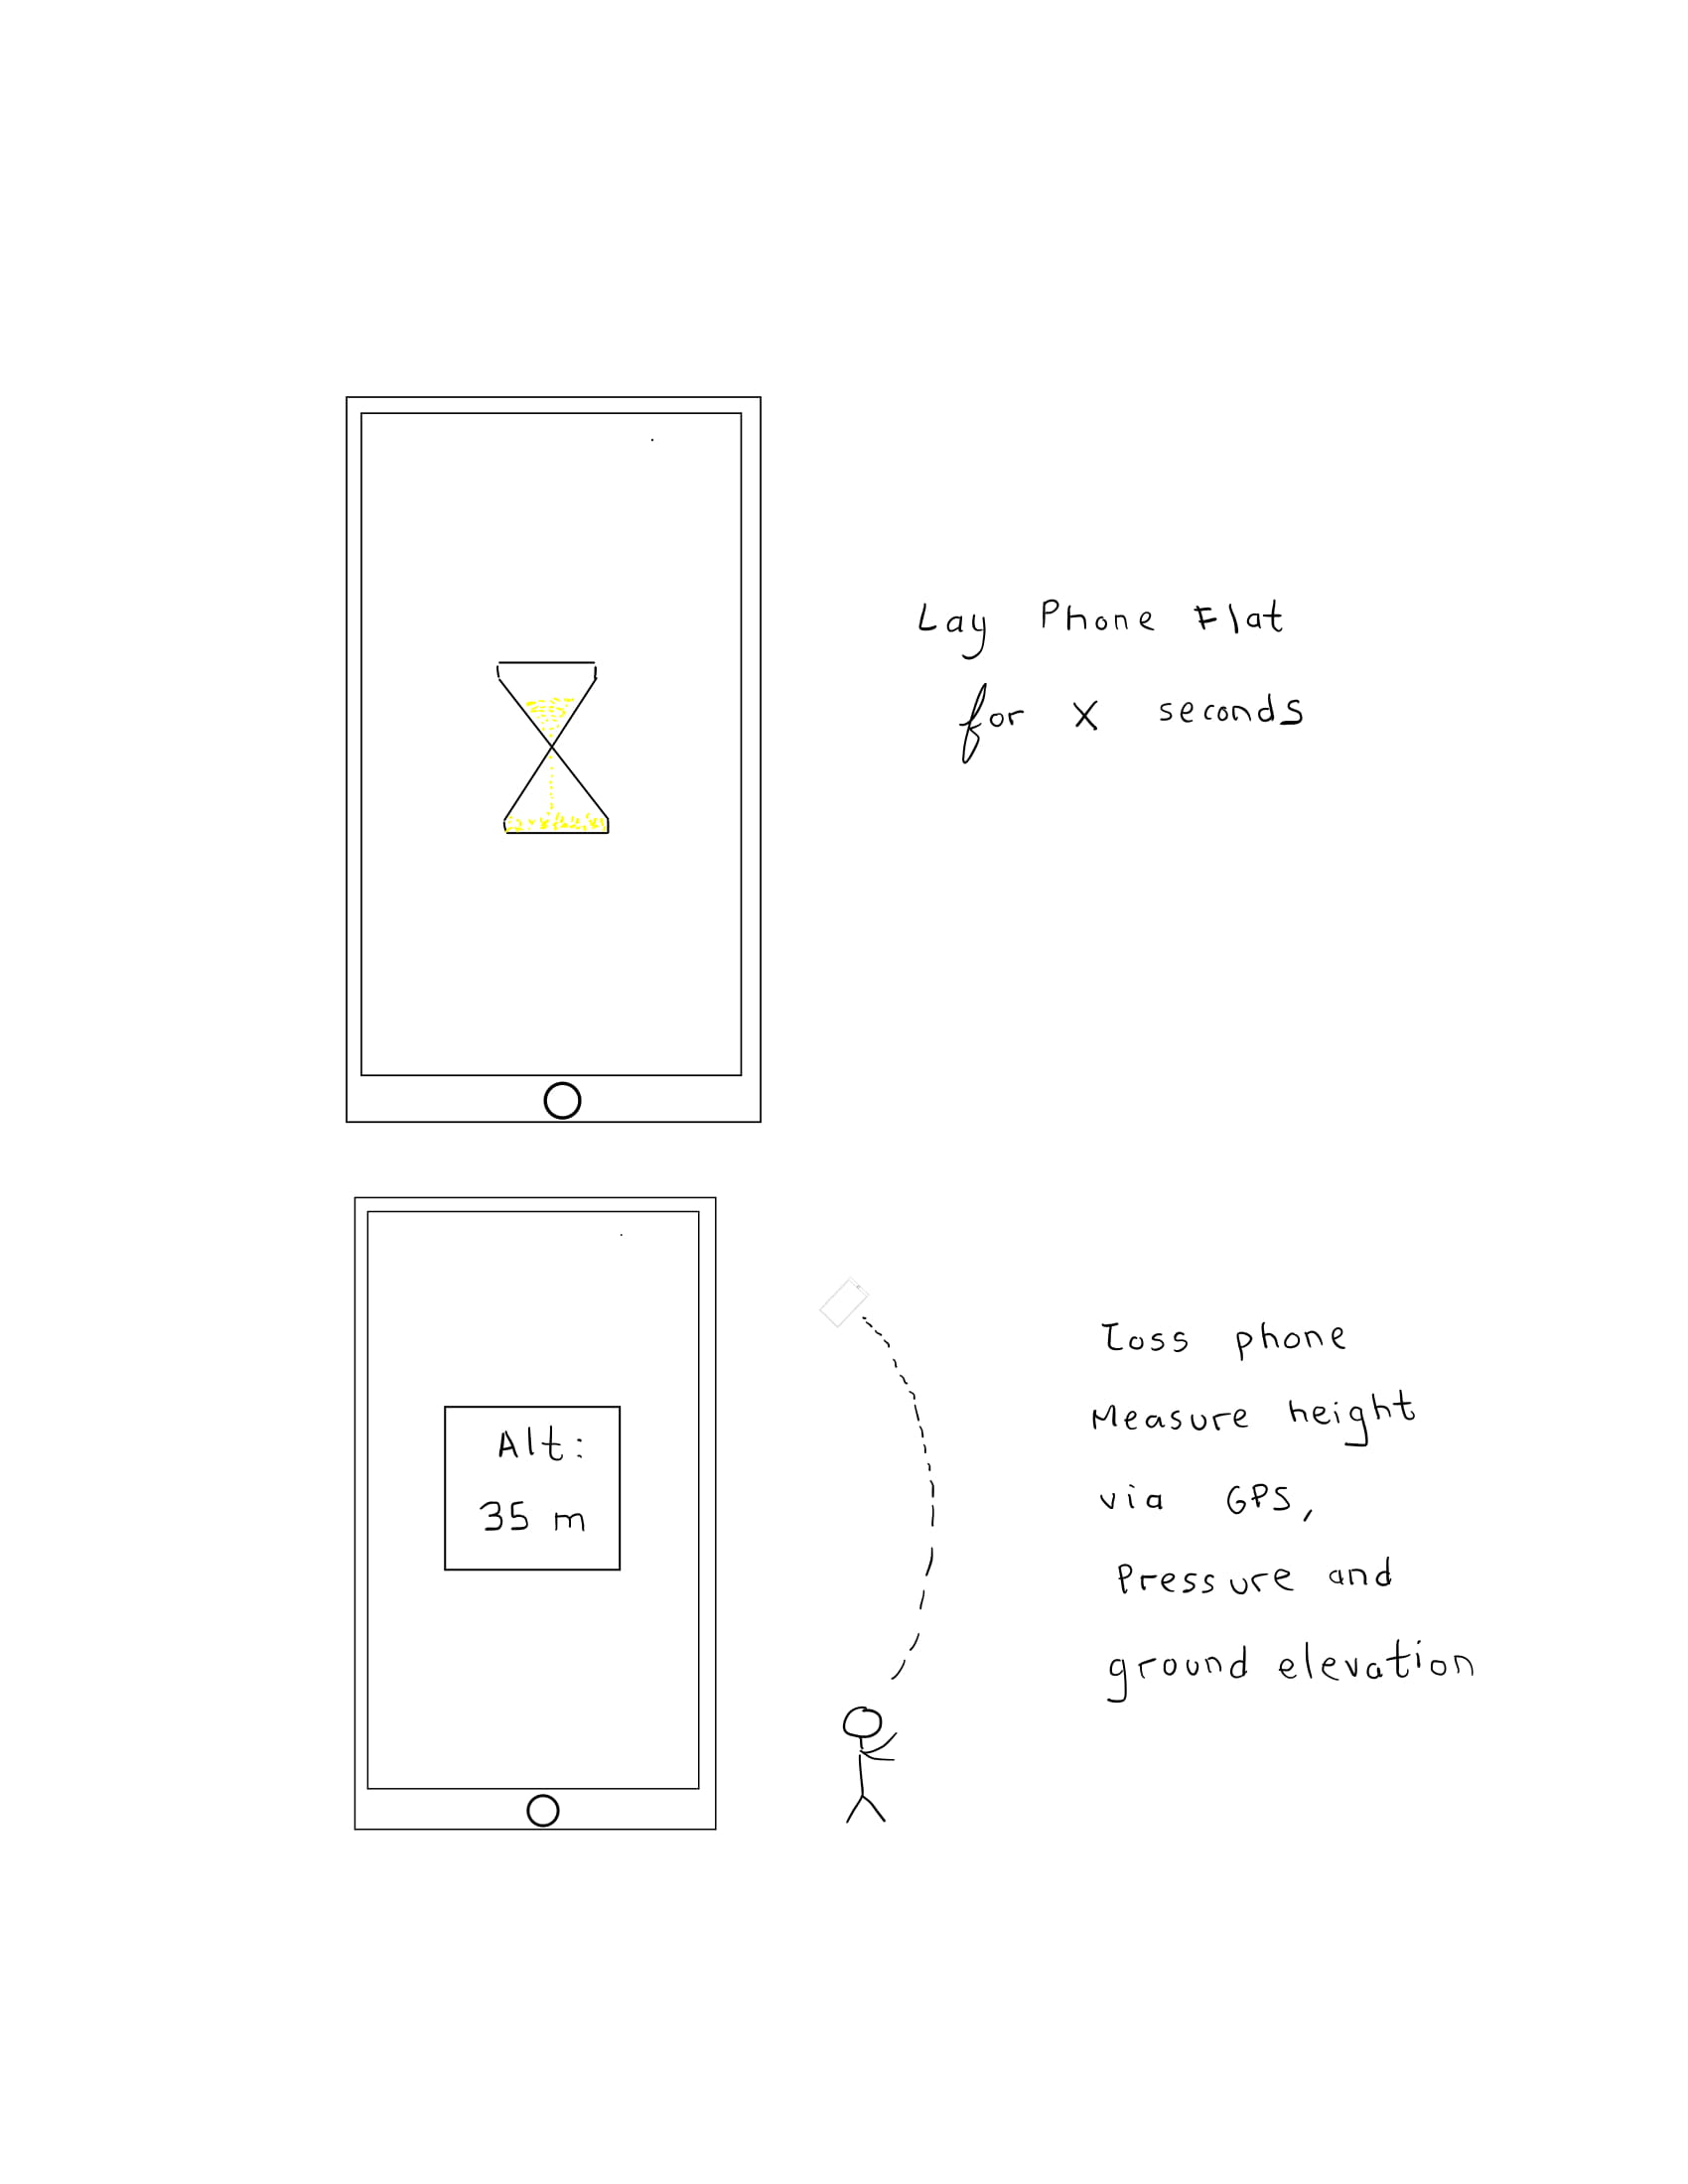 Lay Phone Flat
for X seconds
Alt:
35 m
Toss phone
Measure height
via GPS,
Pressure and
ground elevation